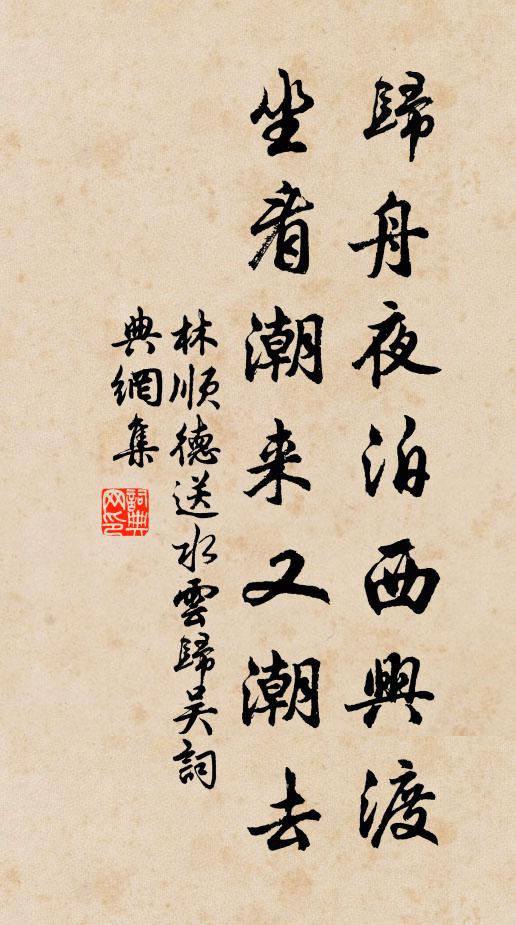 歸舟夜泊西興渡
坐看潮来又潮去
林順德送水雲歸吴詞
典網集
詞典
网印